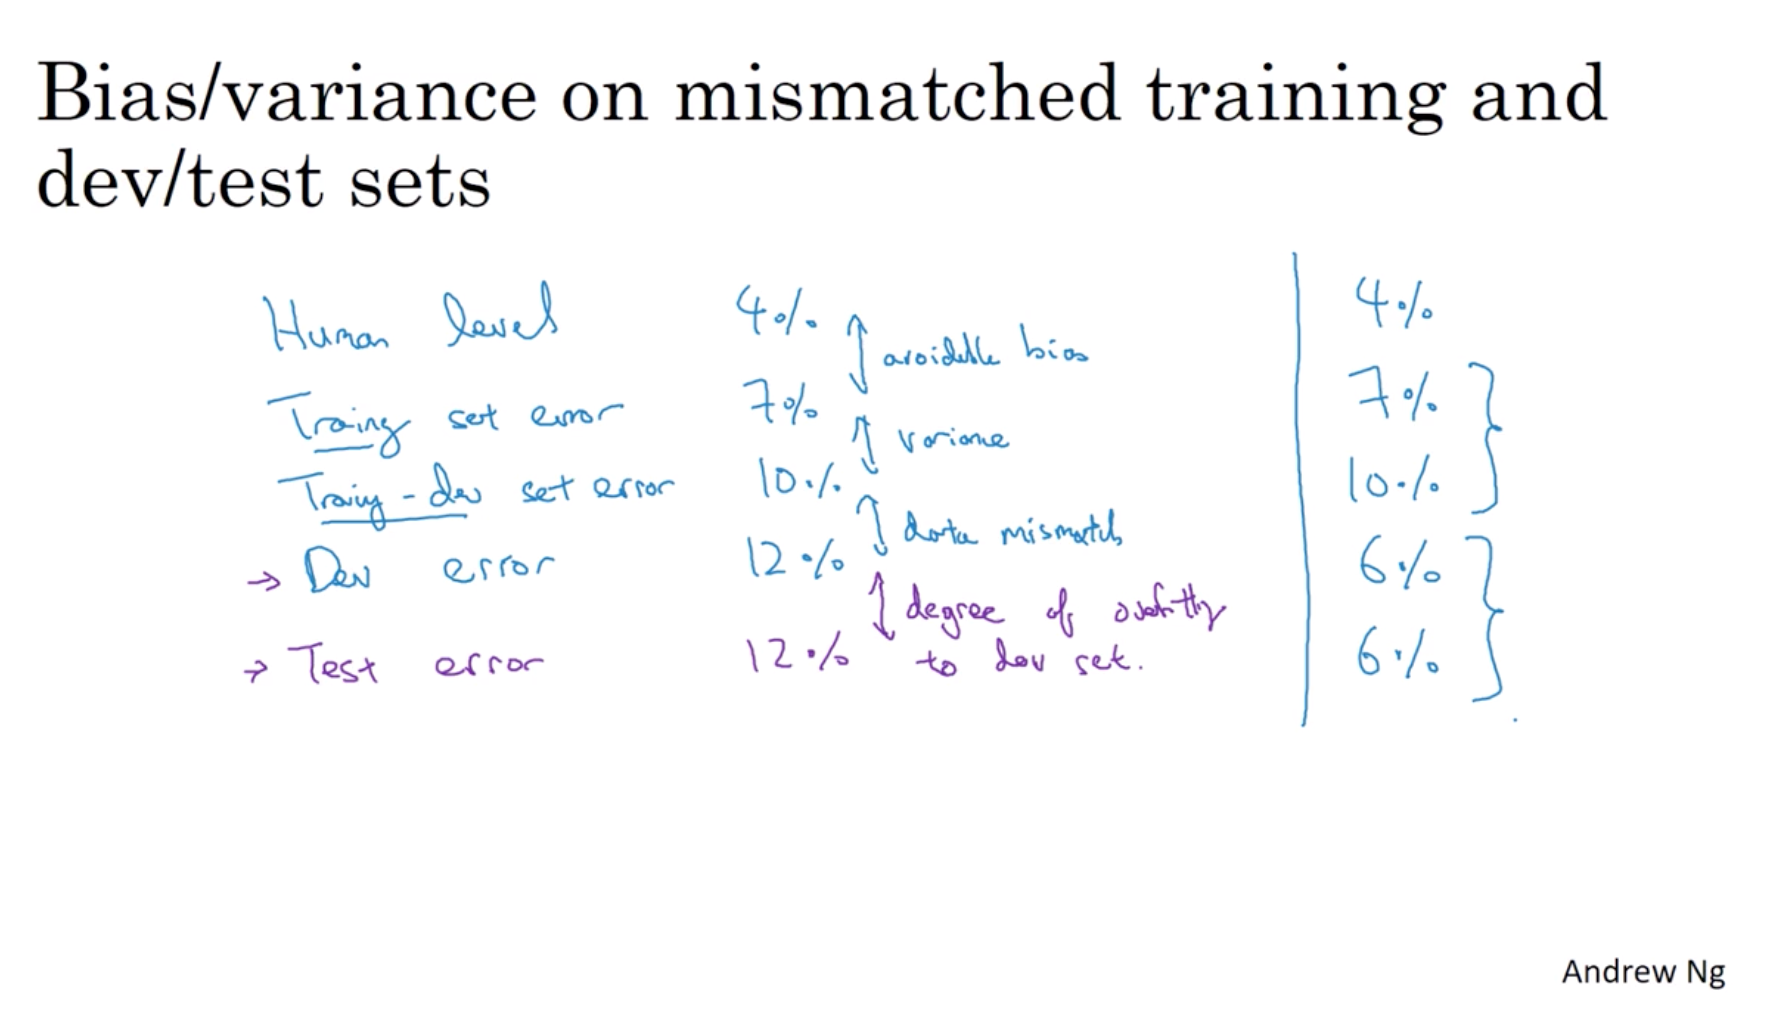 Bias/variance on mismatched training and
dev/test sets
Human level 4% 4%
avoidable bias
Training set error 7% 7%
variance
Training-dev set error 10% 10%
data mismatch
Dev error 12% 6%
degree of overfitting
Test error 12% to dev set. 6%
Andrew Ng